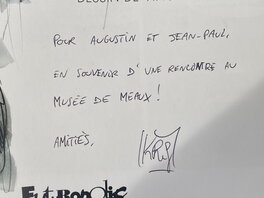 POUR AUGUSTIN ET JEAN-PAUL,
EN SOUVENIR D'UNE RENCONTRE AU
MUSÉE DE MEAUX !
AMITIÉS,
KRIS